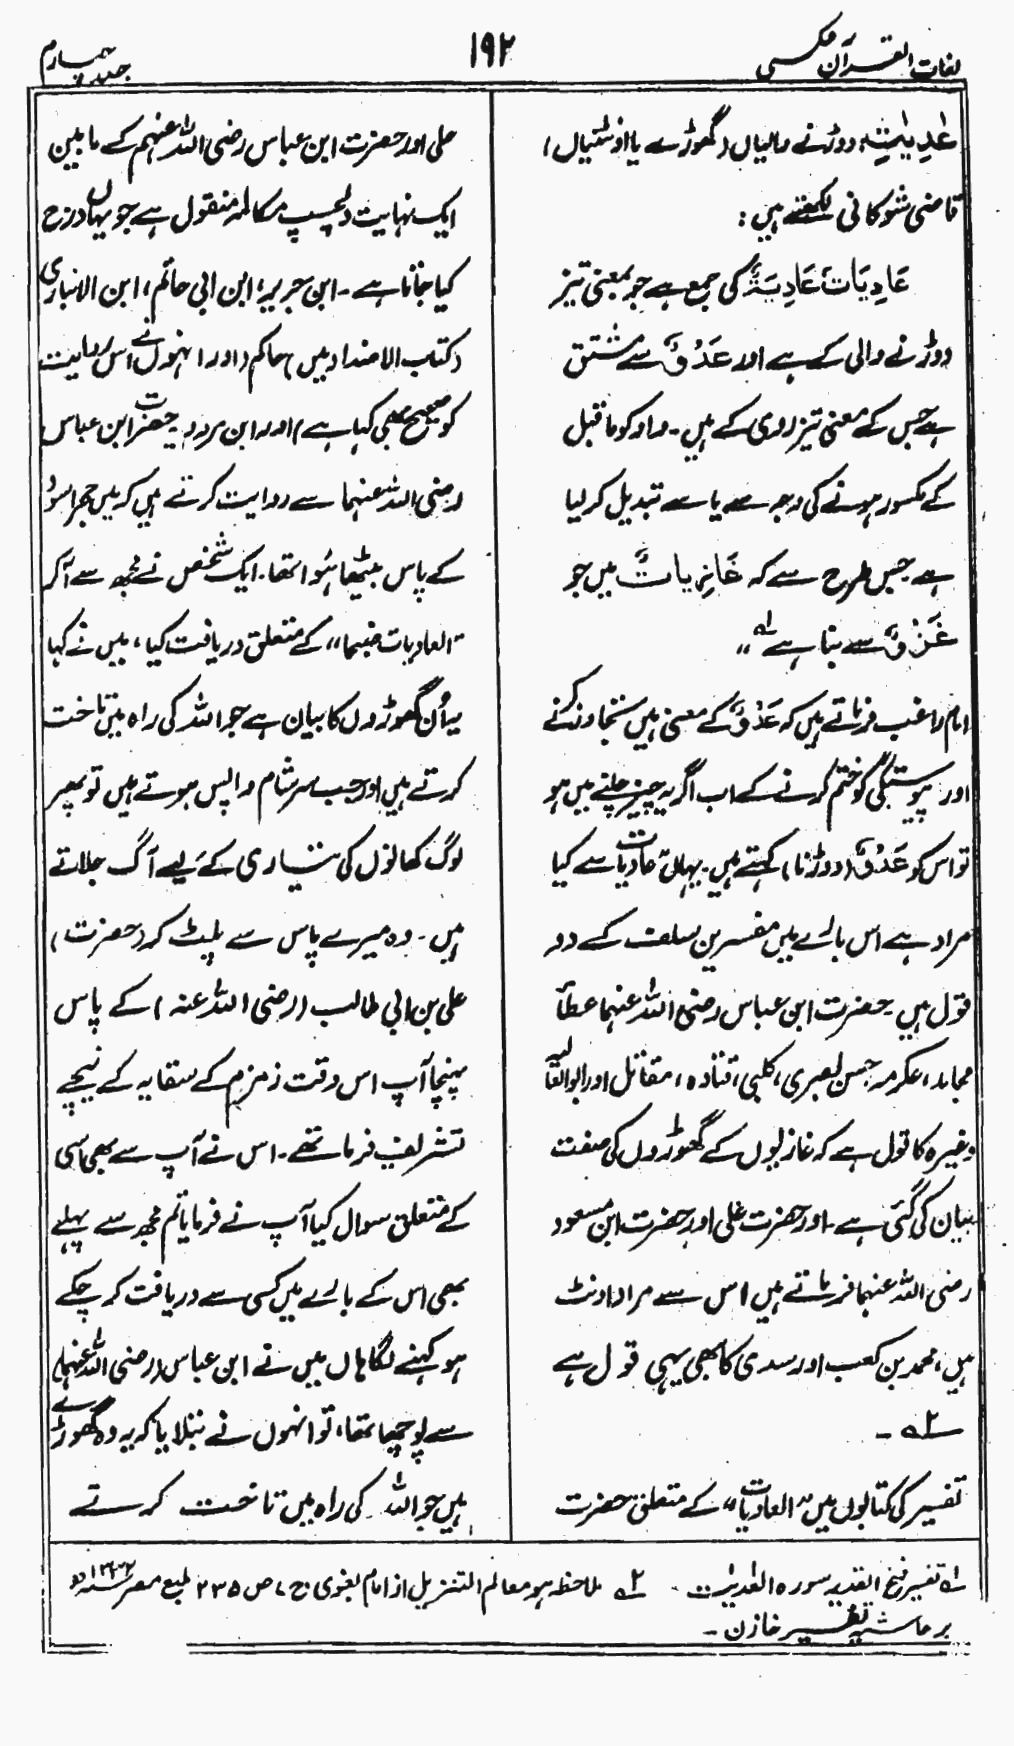 لغات القرآن عکسی
۱۹۲
جلد چہارم
عٰدِیٰتِ، دوڑنے والیاں (گھوڑے یا اونٹنیاں)
قاضی شوکانی لکھتے ہیں:
عَادِیَاتٌ عَادِیَةٌ کی جمع ہے جو بمعنی تیز
دوڑنے والی کے ہے اور عَدْوٌ سے مشتق
ہے جس کے معنی تیز روی کے ہیں۔ واو کو ماقبل
کے مکسور ہونے کی وجہ سے یا سے تبدیل کر لیا
ہے جس طرح سے کہ غَازِیَاتٌ میں جو
غَزْوٌ سے بنا ہے لہ ،،
امام راغب فرماتے ہیں کہ عَدْوٌ کے معنی ہیں تجاوز کرنے
اور پیوستگی کو ختم کرنے کے اب اگر یہ چیز چلنے میں ہو
تو اس کو عَدْوٌ (دوڑنا) کہتے ہیں۔ یہاں عادیات سے کیا
مراد ہے اس بارے میں مفسرین سلف کے دو
قول ہیں حضرت ابن عباس رضی اللہ عنہما عطاؔ
مجاہد، عکرمہ حسن بصری، کلبی، قتادہ، مقاتل اور ابو العالیہ
وغیرہ کا قول ہے کہ غازیوں کے گھوڑوں کی صفت
بیان کی گئی ہے۔ اور حضرت علی اور حضرت ابن مسعود
رضی اللہ عنہما فرماتے ہیں اس سے مراد اونٹ
ہیں، محمد بن کعب اور سدی کا بھی یہی قول ہے
۲ہ۔
تفسیر کی کتابوں میں "العادیات" کے متعلق حضرت
علی اور حضرت ابن عباس رضی اللہ عنہم کے مابین
ایک نہایت دلچسپ مکالمہ منقول ہے جو یہاں درج
کیا جاتا ہے۔ ابن جریر، ابن ابی حاتم، ابن الانباری
(کتاب الاضداد میں) حاکم (اور انہوں نے اس روایت
کو صحیح بھی کہا ہے) اور ابن مردویہ حضرت ابن عباس
رضی اللہ عنہما سے روایت کرتے ہیں کہ میں حجر اسود
کے پاس بیٹھا ہُوا تھا۔ ایک شخص نے مجھ سے آکر
"العادیات ضبحا" کے متعلق دریافت کیا، میں نے کہا
یہ اُن گھوڑوں کا بیان ہے جو اللہ کی راہ میں تاخت
کرتے ہیں اور جب سرِ شام واپس ہوتے ہیں تو پھر
لوگ کھانوں کی تیاری کے لیے آگ جلاتے
ہیں۔ وہ میرے پاس سے پلٹ کر (حضرت)
علی بن ابی طالب (رضی اللہ عنہ) کے پاس
پہنچا آپ اس وقت زمزم کے سقایہ کے نیچے
تشریف فرما تھے۔ اس نے آپ سے بھی اسی
کے متعلق سوال کیا آپ نے فرمایا تم مجھ سے پہلے
بھی اس کے بارے میں کسی سے دریافت کر چکے
ہو کہنے لگا ہاں میں نے ابن عباس (رضی اللہ عنہما)
سے پوچھا تھا، تو انہوں نے بتلایا کہ یہ وہ گھوڑے
ہیں جو اللہ کی راہ میں تاخت کرتے
لہ تفسیر فتح القدیر سورہ العٰدیٰت ۲ہ ملاحظہ ہو معالم التنزیل از امام بغوی ج ۷ ص ۲۳۵ طبع مصر
بر حاشیہ تفسیر خازن۔